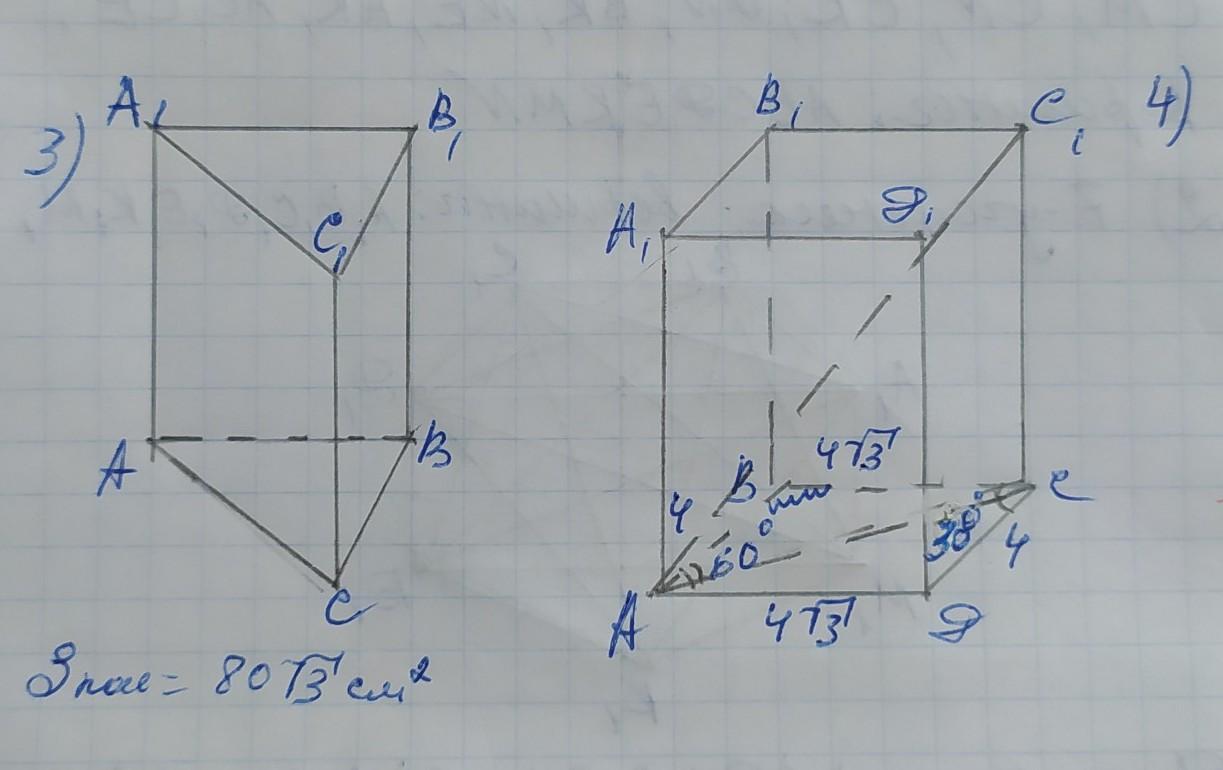 3)
A₁
B₁
C₁
A
B
C
Sпол = 80√3 см²
4)
B₁
C₁
A₁
D₁
4√3
B
C
4
60°
30°
4
A
4√3
D